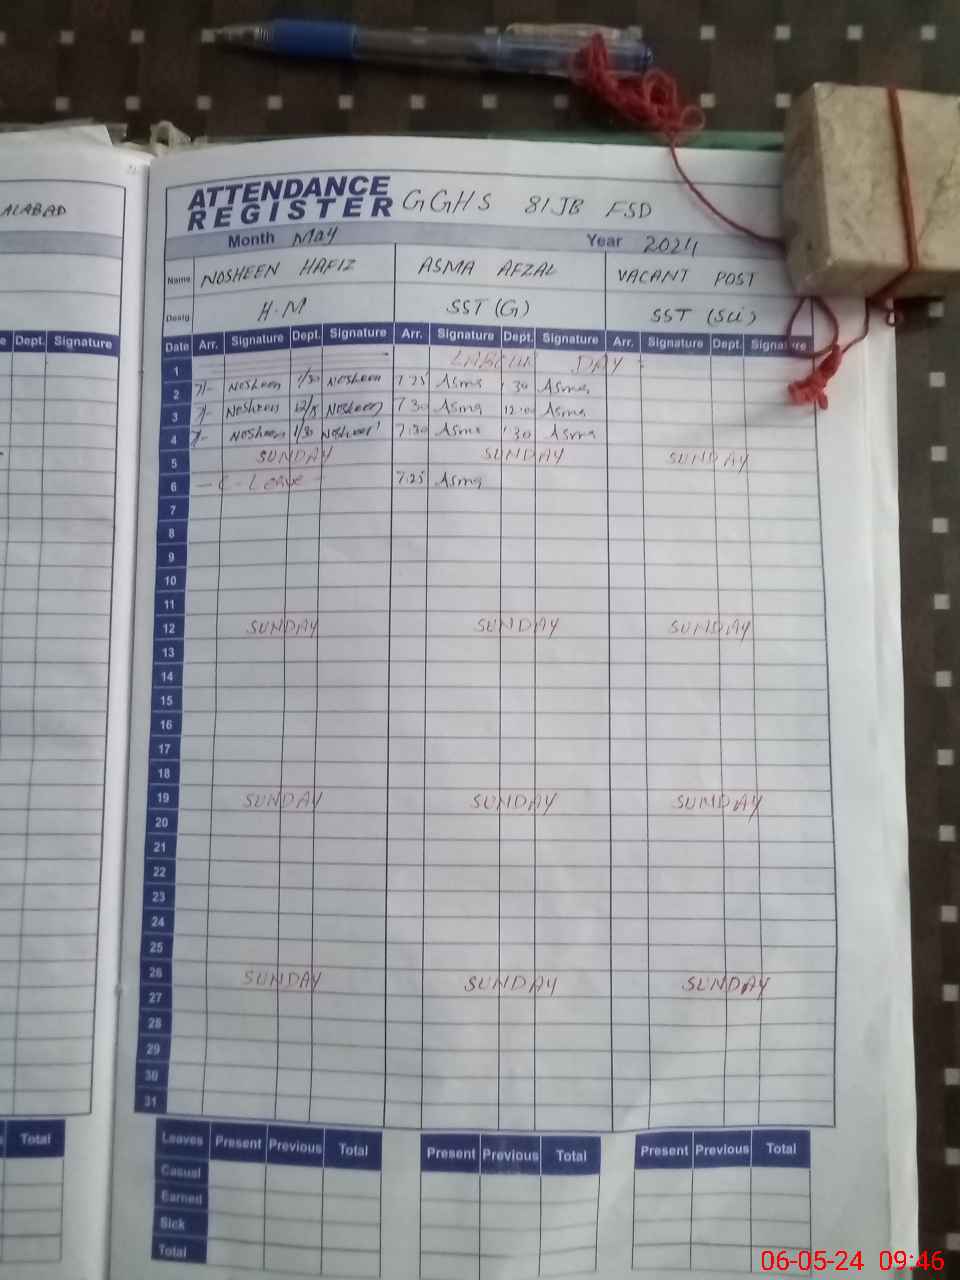 ALABAD
ATTENDANCE
REGISTER GGHS 81JB FSD
Month May Year 2024
Name NOSHEEN HAFIZ ASMA AFZAL VACANT POST
Desig H.M SST (G) SST (Sci)
Dept. Signature
Date Arr. Signature Dept. Signature Arr. Signature Dept. Signature Arr. Signature Dept. Signature
1 LABOUR DAY
2 7/- Nosheen 1/30 Nosheen 7 25 Asma 1 30 Asma
3 7/- Nosheen Nosheen 7 30 Asma 12:00 Asma
4 7- Nosheen 1/30 Nosheen 7:30 Asma 1 30 Asma
5 SUNDAY SUNDAY SUNDAY
6 C-Leave 7.25 Asma
7
8
9
10
11
12 SUNDAY SUNDAY SUNDAY
13
14
15
16
17
18
19 SUNDAY SUNDAY SUNDAY
20
21
22
23
24
25
26 SUNDAY SUNDAY SUNDAY
27
28
29
30
31
Total
Leaves Present Previous Total Present Previous Total Present Previous Total
Casual
Earned
Sick
Total
06-05-24 09:46